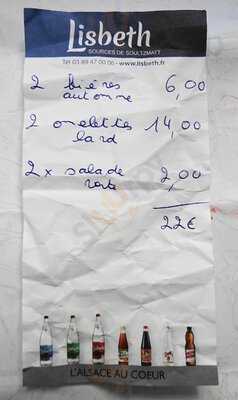 Lisbeth
SOURCES DE SOULTZMATT
Tél 03 89 47 00 06 - www.lisbeth.fr
2 bières 6,00
automne
2 omelettes 14,00
lard
2 x salade 2,00
verte
22€
L'ALSACE AU COEUR